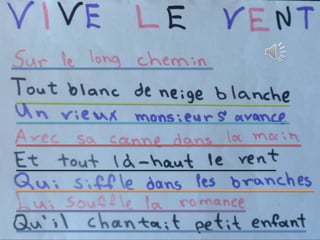 VIVE LE VENT
Sur le long chemin
Tout blanc de neige blanche
Un vieux monsieur s'avance
Avec sa canne dans la main
Et tout là-haut le vent
Qui siffle dans les branches
Lui souffle la romance
Qu'il chantait petit enfant